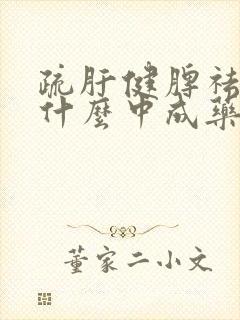 疏肝健脾祛
什麼中成藥
董家二小文